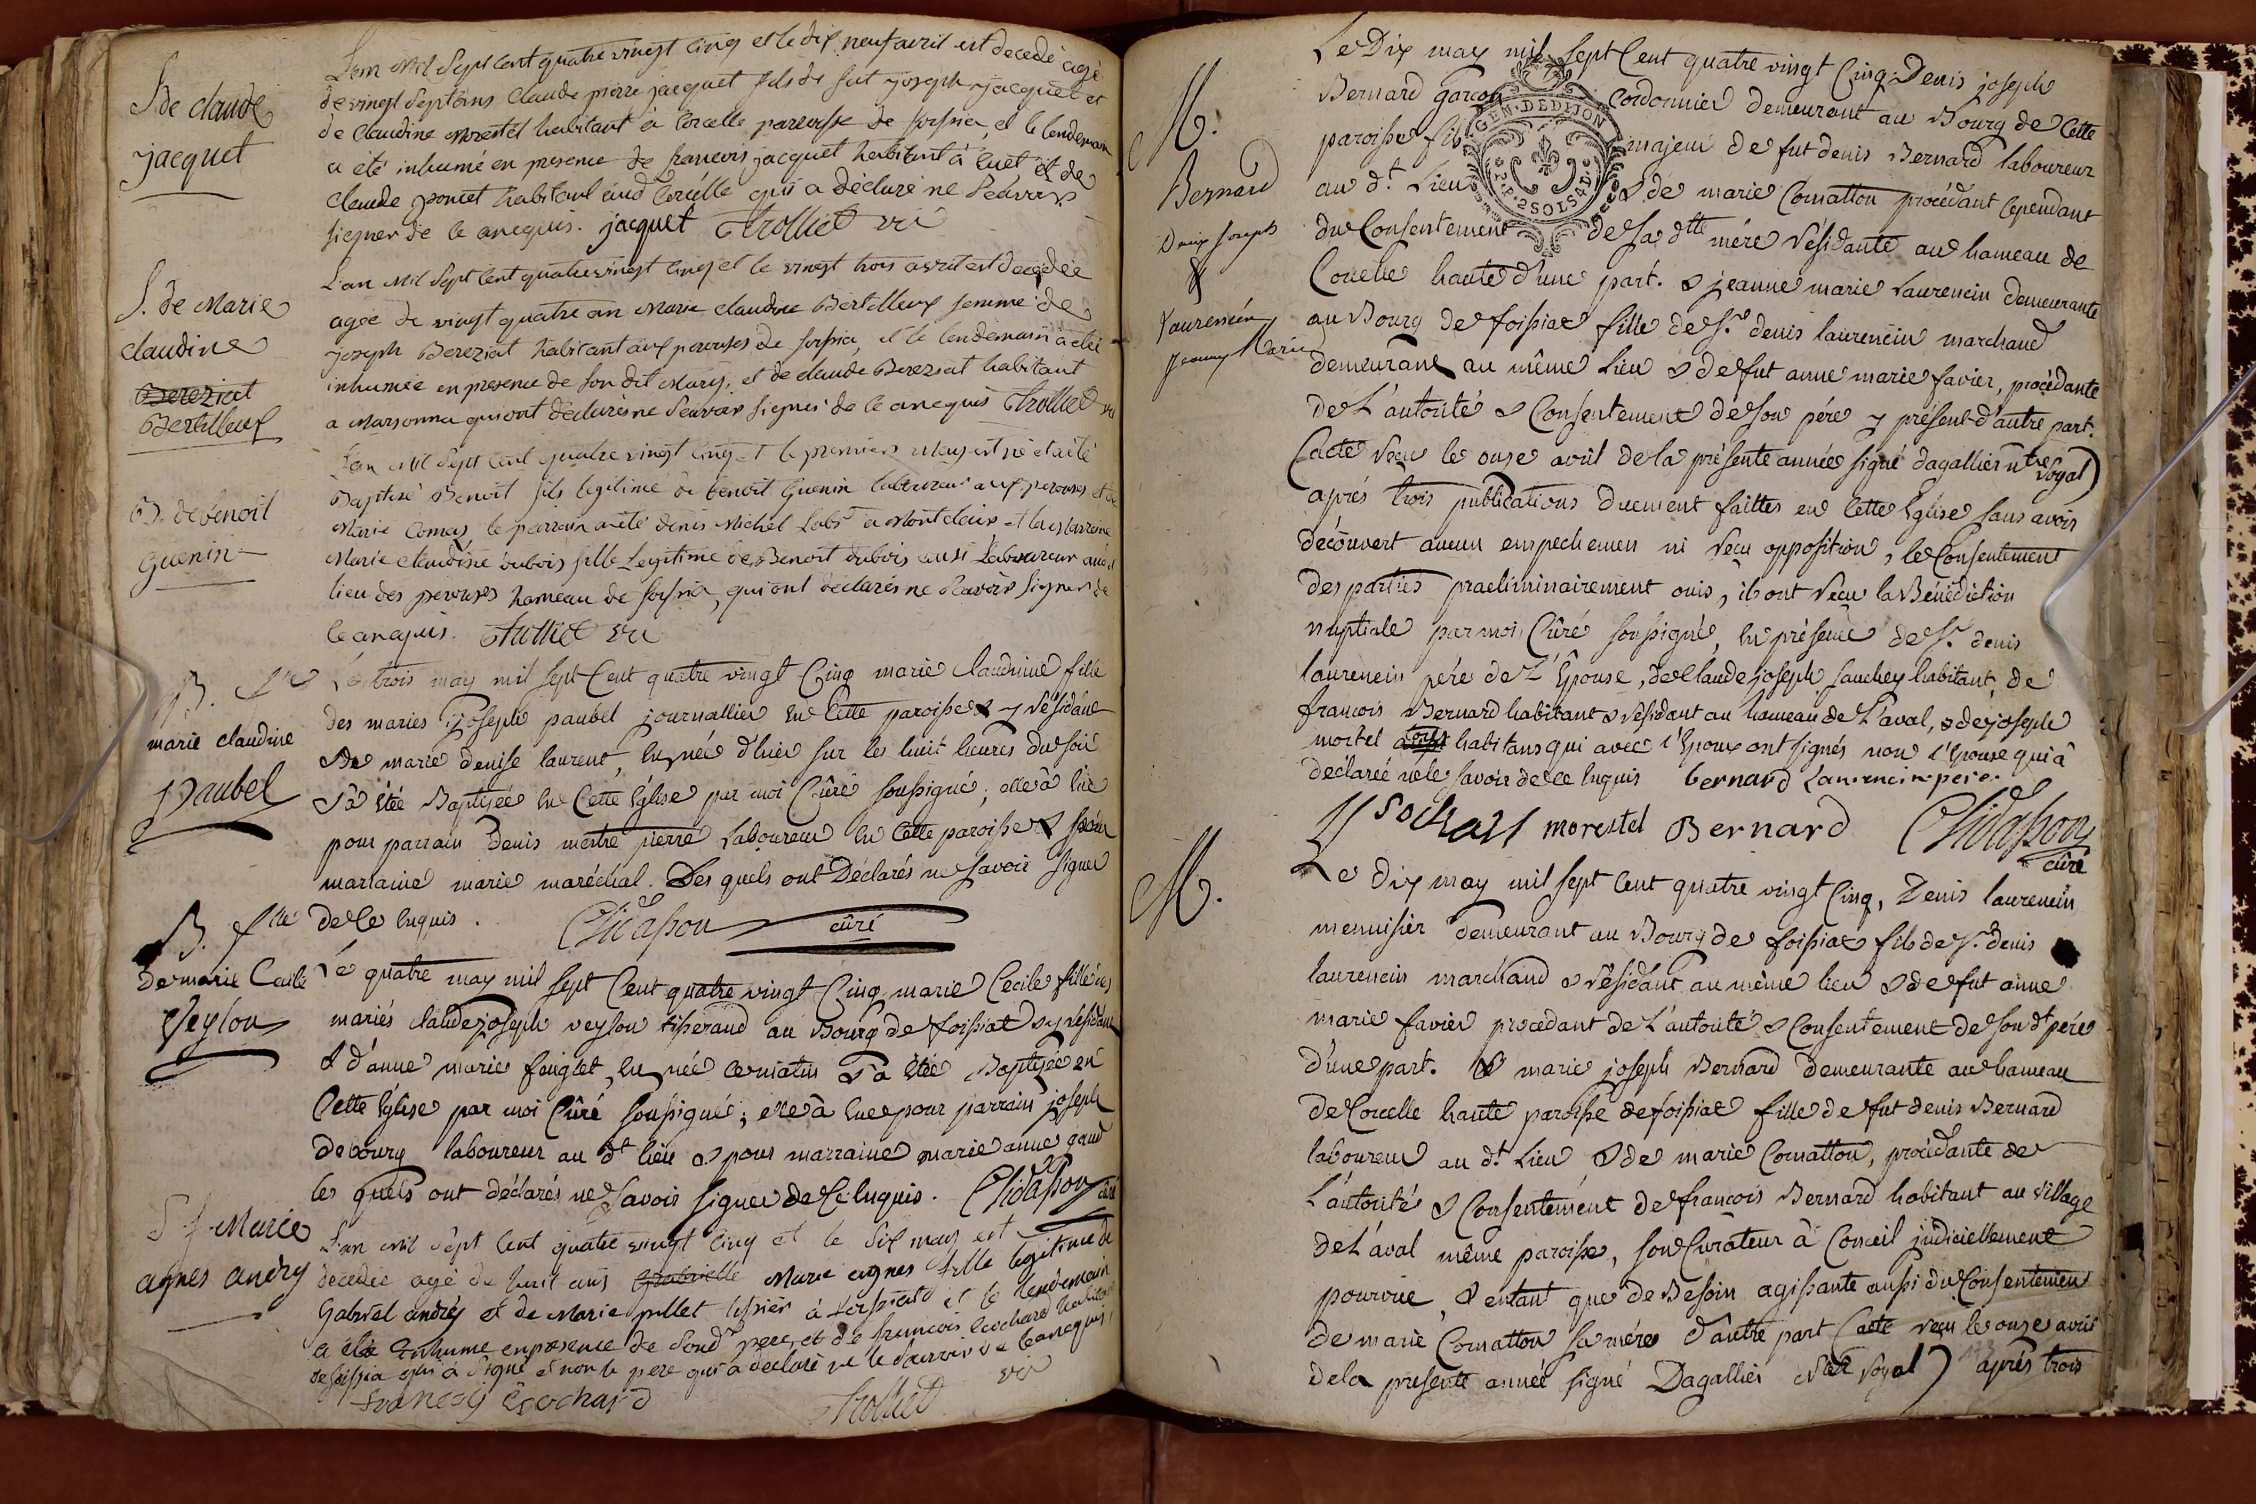 S. de claude
jacquet
L'an mil sept cent quatre vingt cinq et le dix neuf avril est decedé agé
de vingt sept ans claude pierre jacquet fils de fut joseph jacquet et
de claudine morestel habitant à Corcelle paroisse de foissia, et le lendemain
a été inhumé en presence de francois jacquet habitant à cuet et de
claude poncet habitant aud Corcelle qui a déclaré ne Scavoir
signer de ce anequis. jacquet Trolliet vic
S. de Marie
claudine
Bereziat
Bertilleux
L'an mil sept cent quatre vingt cinq et le vingt trois avril est decedée
agée de vingt quatre an Marie claudine Bertilleux femme de
joseph Bereziat habitant aux perouses de foissia, et le lendemain a été
inhumée en presence de son dit Mary, et de claude Bereziat habitant
a Marsonna qui ont déclarés ne Scavoir signer de ce anequis Trolliet vic
B. de benoit
Guenin
L'an mil sept cent quatre vingt cinq et le premier May est né et a été
Baptisé Benoit fils legitime de benoit Guenin laboureur aux perouses et de
Marie Comas, le parrain a été denis Michel Labr a Montclair et la Marreine
Marie claudine dubois fille Legitime de Benoit dubois aussi Laboureur audit
lieu des perouses hameau de foissia, qui ont declarés ne Scavoir signer de
ce anequis. Trolliet vic
B. flle
marie claudine
Paubel
Le trois may mil sept Cent quatre vingt Cinq marie Claudine fille
des mariés joseph paubel journallier en Cette paroisse & y résidant
& de marie denise laurent, en née d'hier sur les huit heures du soir
& à été Baptisée en Cette Eglise par moi Cûré soussigné; elle à eue
pour parrain denis mestre pierre Laboureur en Cette paroisse & pour
marraine marie maréchal. Des quels ont Déclarés ne savoir signer
de ce enquis. Chidasson cûré
B. flle
de marie Cecile
Veylon
Le quatre may mil sept Cent quatre vingt Cinq marie Cecile fille des
mariés claude joseph veylon tisserand au Bourg de foissiat & y résidant
& d'anne marie fouglet, en née ce matin & à été Baptisée en
Cette Eglise par moi Cûré soussigné; elle à eue pour parrain joseph
debourg laboureur au dt lieu & pour marraine marie anne gaud
les quels ont déclarés ne savoir signer de Ce enquis. Chidasson cûré
S f Marie
agnes andrey
L'an mil sept Cent quatre vingt cinq et le six may est
decedée agé de huit ans Gabrielle Marie agnes fille legitime de
Gabriel andrey et de Marie pillet tissier à foissiat et le lendemain
a été inhumé en presence de Sond pere, et de francois ecochard habitant
de foissia qui a signé et non le pere qui a declaré ne le Scavoir de ce anequis,
francoy Ecochard Trolliet vic
M.
Bernard
Denis Joseph
&
Laurencin
Jeanne Marie
Le Dix may mil sept Cent quatre vingt Cinq Denis joseph
Bernard garcon Cordonnier demeurant au Bourg de Cette
paroisse fils majeur de fut denis Bernard laboureur
au dt. Lieu & de marie Cornatton procédant cependant
du Consentement de sa dtte mére résidante au hameau de
Corcelle haute d'une part. & jeanne marie Laurencin demeurante
au Bourg de foissiat fille de Sr denis laurencin marchand
demeurant au même Lieu & de fut anne marie favier, procédante
de L'autorité & Consentement de son pére y présent d'autre part.
(acte reçu le onze avril de la présente année signé dagallier ntre royal)
GEN. DE DIJON
2 SOLS 4 D.
aprés trois publications duement faittes en Cette Eglise sans avoir
découvert aucun empechemen ni reçu opposition, le Consentement
des parties praeliminairement ouis, ils ont reçu la Bénédiction
nuptiale par moi Cûré soussigné, en présence de Sr. denis
laurencin pére de L'Epouse, de Claude joseph sauchey habitant, de
francois Bernard habitant & résidant au hameau de L'aval, & de joseph
mortel aussi habitans qui avec l'Epoux ont signés non l'Epouse qui à
declarée ne le savoir de ce enquis bernard Laurencin pere.
morestel Bernard Chidasson cûré
M.
Le dix may mil sept Cent quatre vingt Cinq, Denis laurencin
menuisier demeurant au Bourg de foissiat fils de Sr. denis
laurencin marchand & résidant au même lieu & de fut anne
marie favier procedant de L'autorité & Consentement de son dt pére
d'une part. & marie joseph Bernard demeurante au hameau
de Corcelle haute paroisse de foissiat fille de fut denis Bernard
laboureur au dt. Lieu & de marie Cornatton, procédante de
L'autorité & Consentement de francois Bernard habitant au village
de L'aval même paroisse, son Curateur à Conseil judiciellement
pourvue, & entant que de Besoin agissante aussi du Consentemen
de marie Cornatton sa mére d'autre part (acte reçu le onze avril
de la presente année signé Dagallier Ntre royal) aprés trois